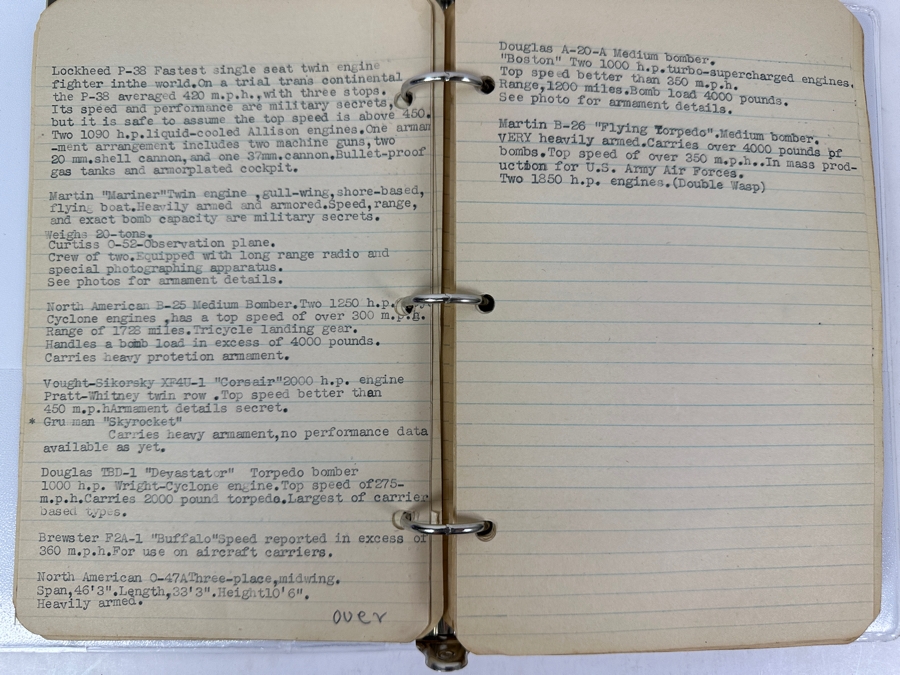 Lockheed P-38 Fastest single seat twin engine
fighter inthe world.On a trial trans continental
the P-38 averaged 420 m.p.h.,with three stops.
Its speed and performance are military secrets,
but it is safe to assume the top speed is above 450.
Two 1090 h.p.liquid-cooled Allison engines.One arman
-ment arrangement includes two machine guns,two
20 mm.shell cannon,and one 37mm.cannon.Bullet-proof
gas tanks and armorplated cockpit.
Martin "Mariner"Twin engine ,gull-wing,shore-based,
flying boat.Heavily armed and armored.Speed,range,
and exact bomb capacity are military secrets.
Weighs 20-tons.
Curtiss O-52-Observation plane.
Crew of two.Equipped with long range radio and
special photographing apparatus.
See photos for armament details.
North American B-25 Medium Bomber.Two 1250 h.p.
Cyclone engines ,has a top speed of over 300 m.p.g.
Range of 1728 miles.Tricycle landing gear.
Handles a bomb load in excess of 4000 pounds.
Carries heavy protetion armament.
Vought-Sikorsky XF4U-1 "Corsair"2000 h.p. engine
Pratt-Whitney twin row .Top speed better than
450 m.p.hArmament details secret.
* Gru man "Skyrocket"
Carries heavy armament,no performance data
available as yet.
Douglas TBD-1 "Devastator" Torpedo bomber
1000 h.p. Wright-Cyclone engine.Top speed of275-
m.p.h.Carries 2000 pound torpedo.Largest of carrier
based types.
Brewster F2A-1 "Buffalo"Speed reported in excess of
360 m.p.h.For use on aircraft carriers.
North American O-47AThree-place,midwing.
Span,46'3".Length,33'3".Height10'6".
Heavily armed.
over
Douglas A-20-A Medium bomber.
"Boston" Two 1000 h.p.turbo-supercharged engines.
Top speed better than 350 m.p.h.
Range,1200 miles.Bomb load 4000 pounds.
See photo for armament details.
Martin B-26 "Flying Torpedo".Medium bomber.
VERY heavily armed.Carries over 4000 pounds of
bombs.Top speed of over 350 m.p.h..In mass prod-
uction for U.S. Army Air Forces.
Two 1850 h.p. engines.(Double Wasp)